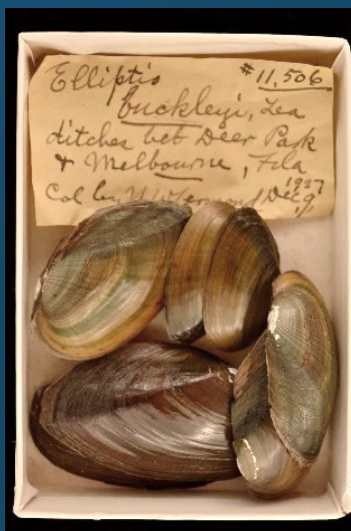 Elliptio #11,506
buckleyi, Lea
ditches bet Deer Park
& Melbourne, Fla
Col by 1927 Dec 9,